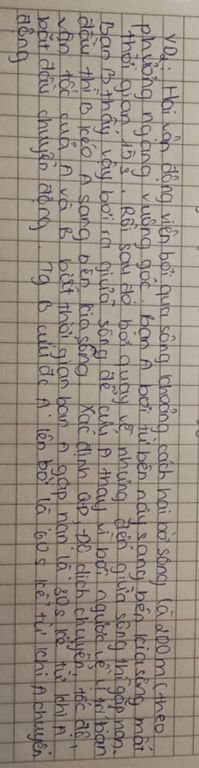 VD2: Hai vận động viên bơi qua sông khoảng cách hai bờ sông là 200m (theo
phương ngang vuông góc. Bạn A bơi từ bên này sang bên kia sông mất
thời gian 15s. Rồi sau đó bơi quay về nhưng đến giữa sông thì gặp nạn.
Bạn B thấy vậy bơi ra giữa sông để cứu A thay vì bơi ngược về vị trí ban
đầu thì B kéo A sang bên kia sông. Xác định QĐ, Độ dịch chuyển, tốc độ,
vận tốc của A và B biết thời gian bạn A gặp nạn là 30s kể từ khi A
bắt đầu chuyển động. Tg B cứu đc A lên bờ là 60s kể từ khi A chuyển
động